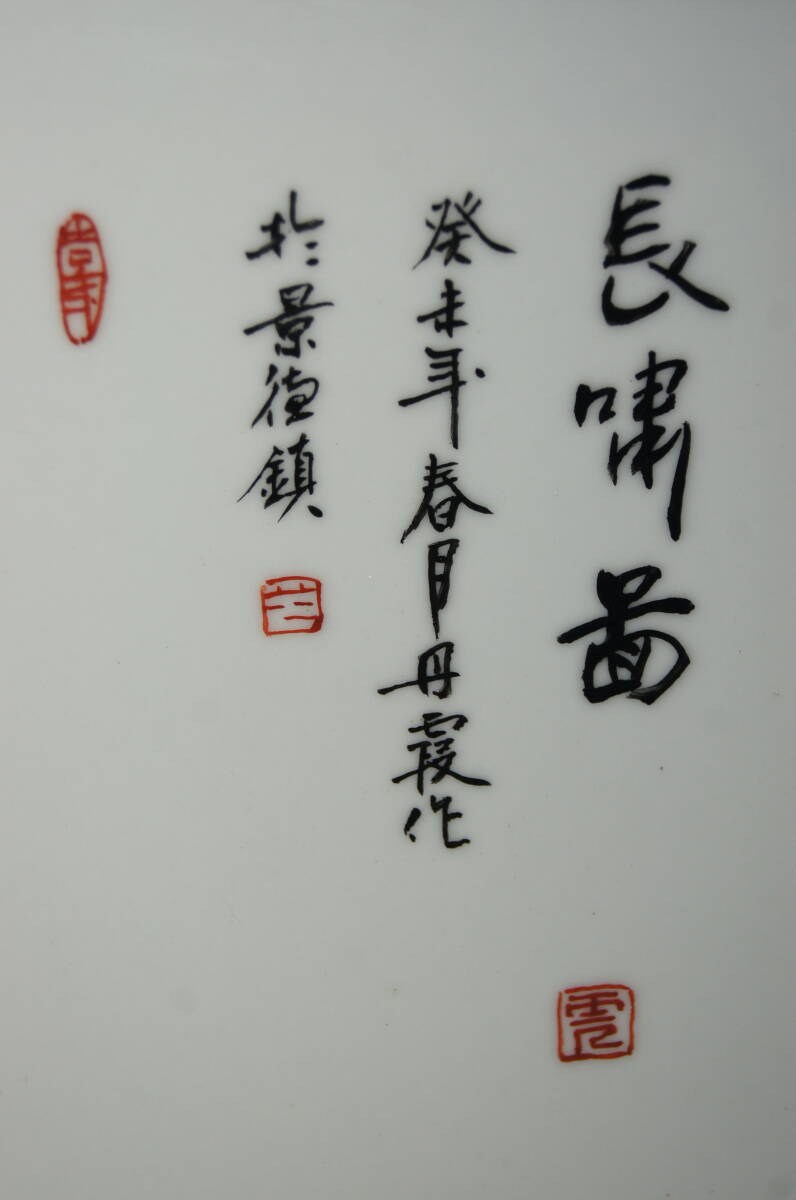 長嘯啚
癸未年春月丹霞作
於景德鎮